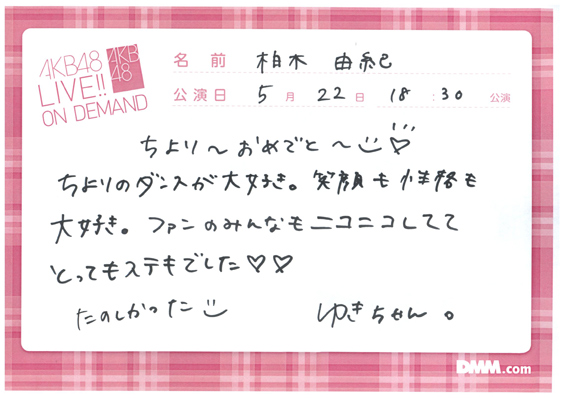 AKB48
LIVE!!
ON DEMAND
AKB
48
名前 柏木 由紀
公演日 5月 22日 18:30 公演
ちより～おめでと～
ちよりのダンスが大好き。笑顔も性格も
大好き。ファンのみんなもニコニコしてて
とってもステキでした♡♡
たのしかった
ゆきちゃん。
DMM.com